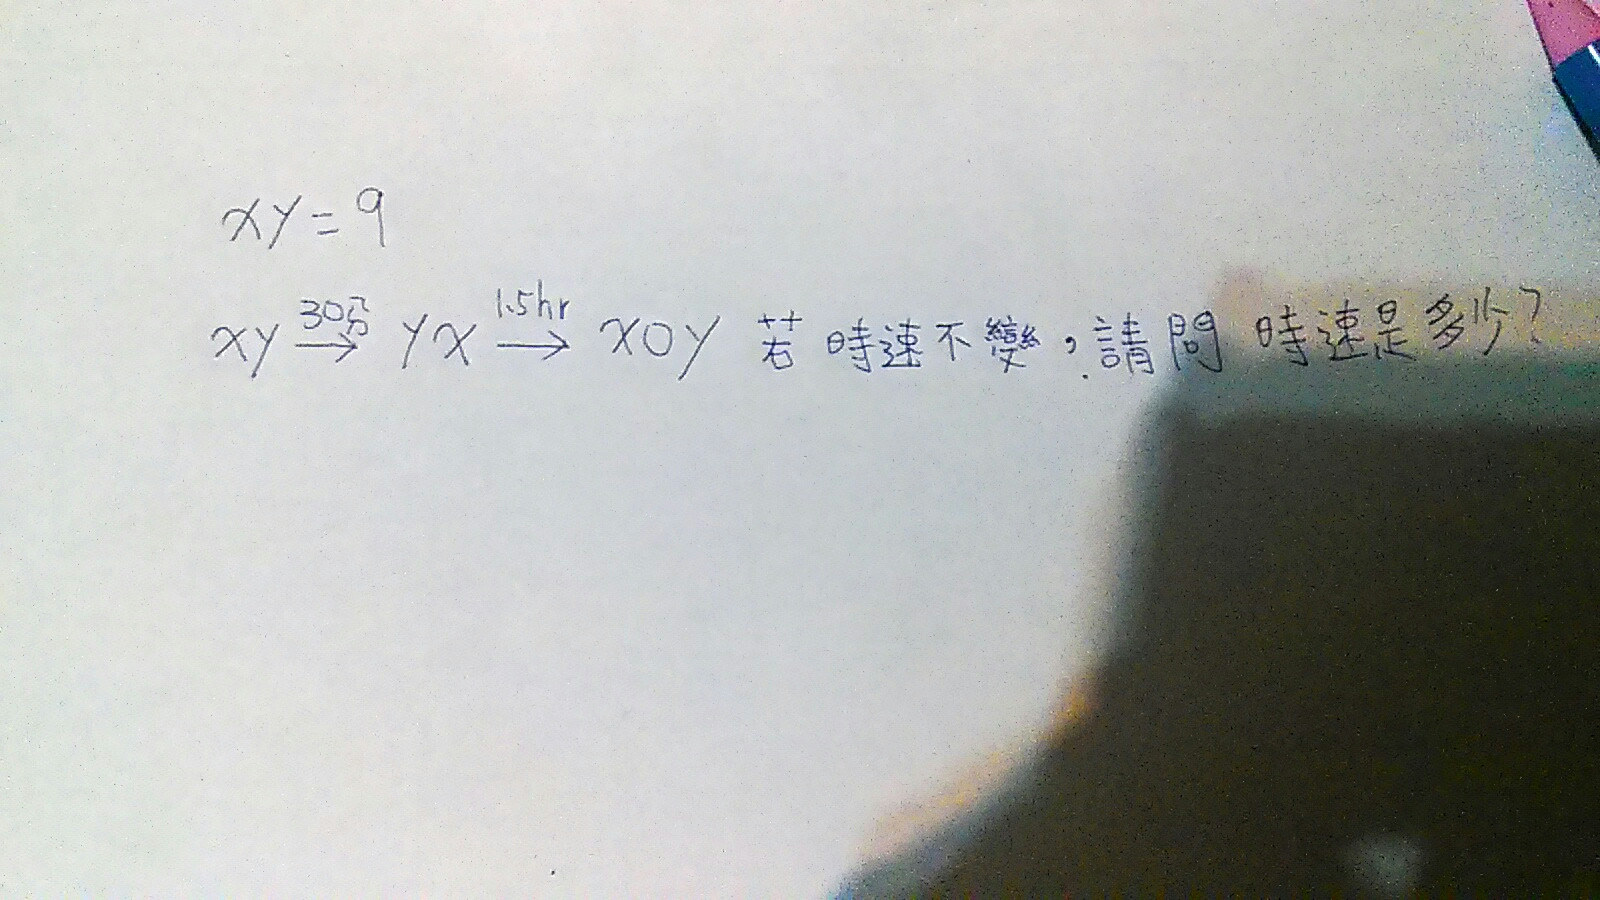 xy=9
xy 30分→ yx 1.5hr→ x0y 若時速不變，請問時速是多少？